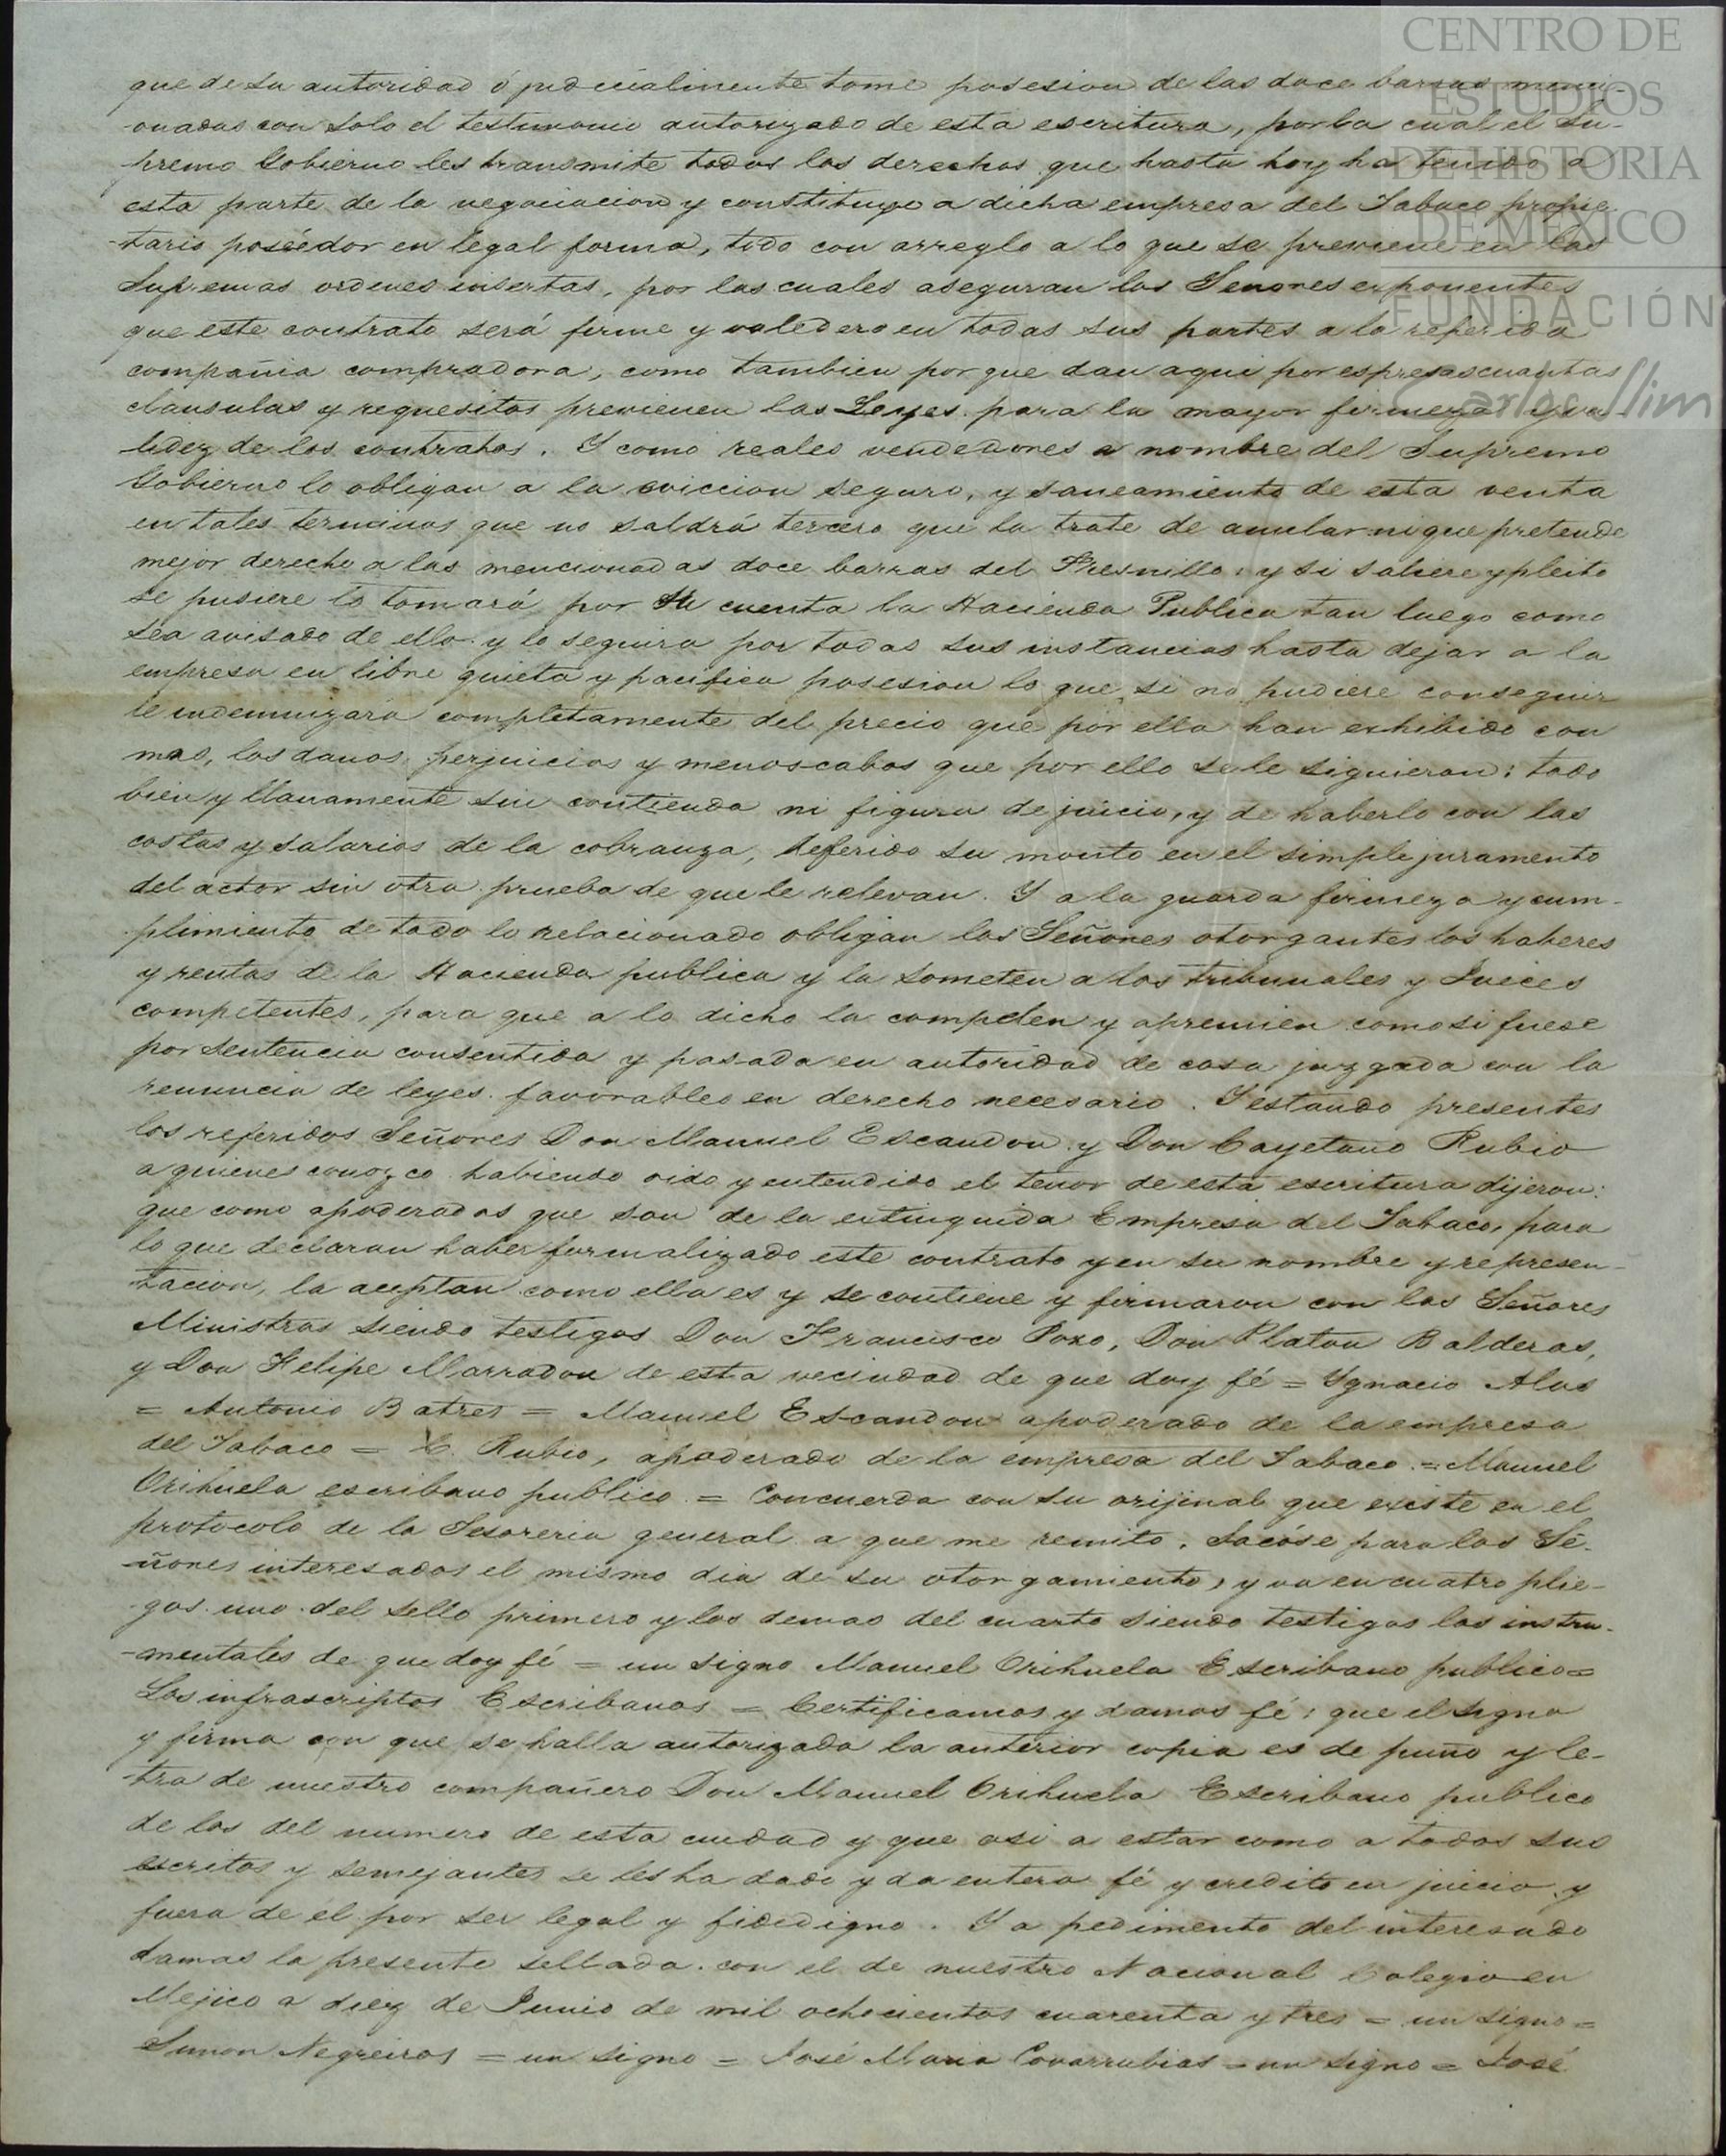 CENTRO DE
ESTUDIOS
DE HISTORIA
DE MÉXICO
FUNDACIÓN
Carlos Slim
que de su autoridad ó judicialmente tome posesion de las doce barras menci-
onadas con solo el testimonio autorizado de esta escritura, por la cual el Su-
premo Gobierno les transmite todos los derechos que hasta hoy ha tenido a
esta parte de la negociacion y constituye a dicha empresa del Tabaco propie-
tario poséedor en legal forma, todo con arreglo a lo que se previene en las
Supremas ordenes insertas, por las cuales aseguran los Senores exponentes
que este contrato será firme y valedero en todas sus partes a la referida
compañia compradora, como tambien porque dan aqui por espresas cuantas
clausulas y requesitos previenen las Leyes para la mayor firmeza y va-
lidez de los contratos. Y como reales vendedores a nombre del Supremo
Gobierno lo obligan a la eviccion seguro, y saneamiento de esta venta
en tales terminos que no saldrá tercero que la trate de anular ni que pretenda
mejor derecho a las mencionadas doce barras del Fresnillo: y si saliere y pleito
se pusiere lo tomará por su cuenta la Hacienda Publica tan luego como
sea avisado de ello y lo seguira por todas sus instancias hasta dejar a la
empresa en libre quieta y pacifica posesion lo que si no pudiere conseguir
le indemnizara completamente del precio que por ella han exhibido con
mas, los danos, perjuicios y menoscabos que por ello se le siguieran: todo
bien y llanamente sin contienda ni figura de juicio, y de haberlo con las
costas y salarios de la cobranza, deferido su monto en el simple juramento
del actor sin otra prueba de que le relevan. Y a la guarda firmeza y cum-
plimiento de todo lo relacionado obligan los Señores otorgantes los haberes
y rentas de la Hacienda publica y la someten a los tribunales y Jueces
competentes, para que a lo dicho la compelen y apremien como si fuese
por sentencia consentida y pasada en autoridad de cosa juzgada con la
renuncia de leyes favorables en derecho necesario. Y estando presentes
los referidos Señores Don Manuel Escandon y Don Cayetano Rubio
a quienes conozco habiendo oido y entendido el tenor de esta escritura dijeron:
que como apoderados que son de la extinguida Empresa del Tabaco, para
lo que declaran haber formalizado este contrato y en su nombre y represen-
tacion, la aceptan como ella es y se contiene y firmaron con los Señores
Ministros siendo testigos Don Francisco Pozo, Don Platon Balderas,
y Don Felipe Marradon de esta vecindad de que doy fé = Ygnacio Alas
= Antonio Batres = Manuel Escandon apoderado de la empresa
del Tabaco = C. Rubio, apoderado de la empresa del Tabaco = Manuel
Orihuela escribano publico = Concuerda con su orijinal que existe en el
protocolo de la Tesoreria general a que me remito. Sacóse para los Se-
ñores interesados el mismo dia de su otorgamiento, y va en cuatro plie-
gos uno del sello primero y los demas del cuarto siendo testigos los instru-
mentales de que doy fé = un signo Manuel Orihuela Escribano publico =
Los infrascriptos Escribanos = Certificamos y damos fé: que el signo
y firma con que se halla autorizada la anterior copia es de puño y le-
tra de nuestro compañero Don Manuel Orihuela Escribano publico
de los del numero de esta ciudad y que asi a estar como a todos sus
escritos y semejantes se les ha dado y da entera fé y credito en juicio y
fuera de él por ser legal y fidedigno. Y a pedimento del interesado
damos la presente sellada con el de nuestro Nacional Colegio en
Mejico a diez de Junio de mil ochocientos cuarenta y tres = un signo =
Simon Negreiros = un signo = José Maria Covarrubias = un signo = José